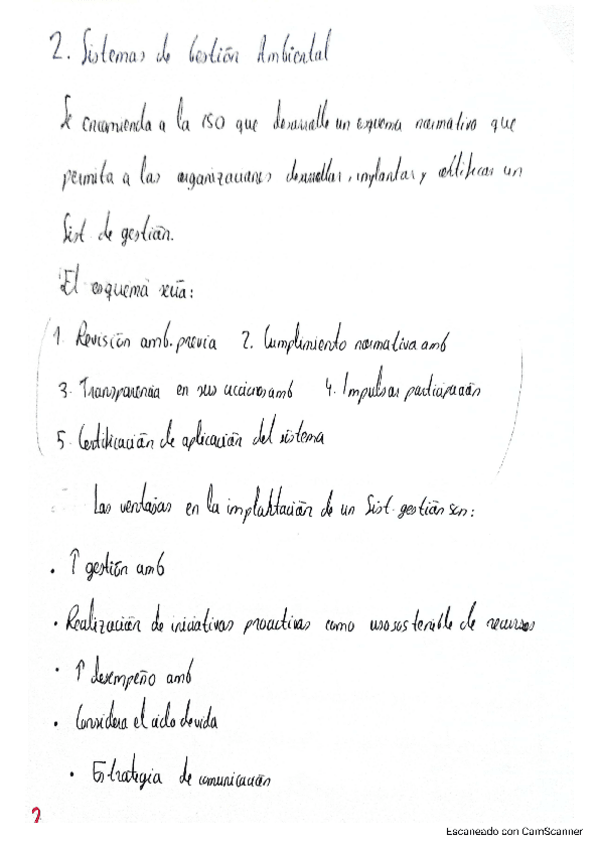 2. Sistemas de Gestión Ambiental
Se encomienda a la ISO que desarrolle un esquema normativo que
permita a las organizaciones desarrollar, implantar y certificar un
Sist de gestión.
El esquema sería:
1. Revisión amb. previa 2. Cumplimiento normativa amb
3. Transparencia en sus acciones amb 4. Impulsar participación
5. Certificación de aplicación del sistema
Las ventajas en la implantación de un Sist. gestión son:
· ↑ gestión amb
· Realización de iniciativas proactivas como uso sostenible de recursos
· ↑ desempeño amb
· Considera el ciclo de vida
· Estrategia de comunicación
2
Escaneado con CamScanner